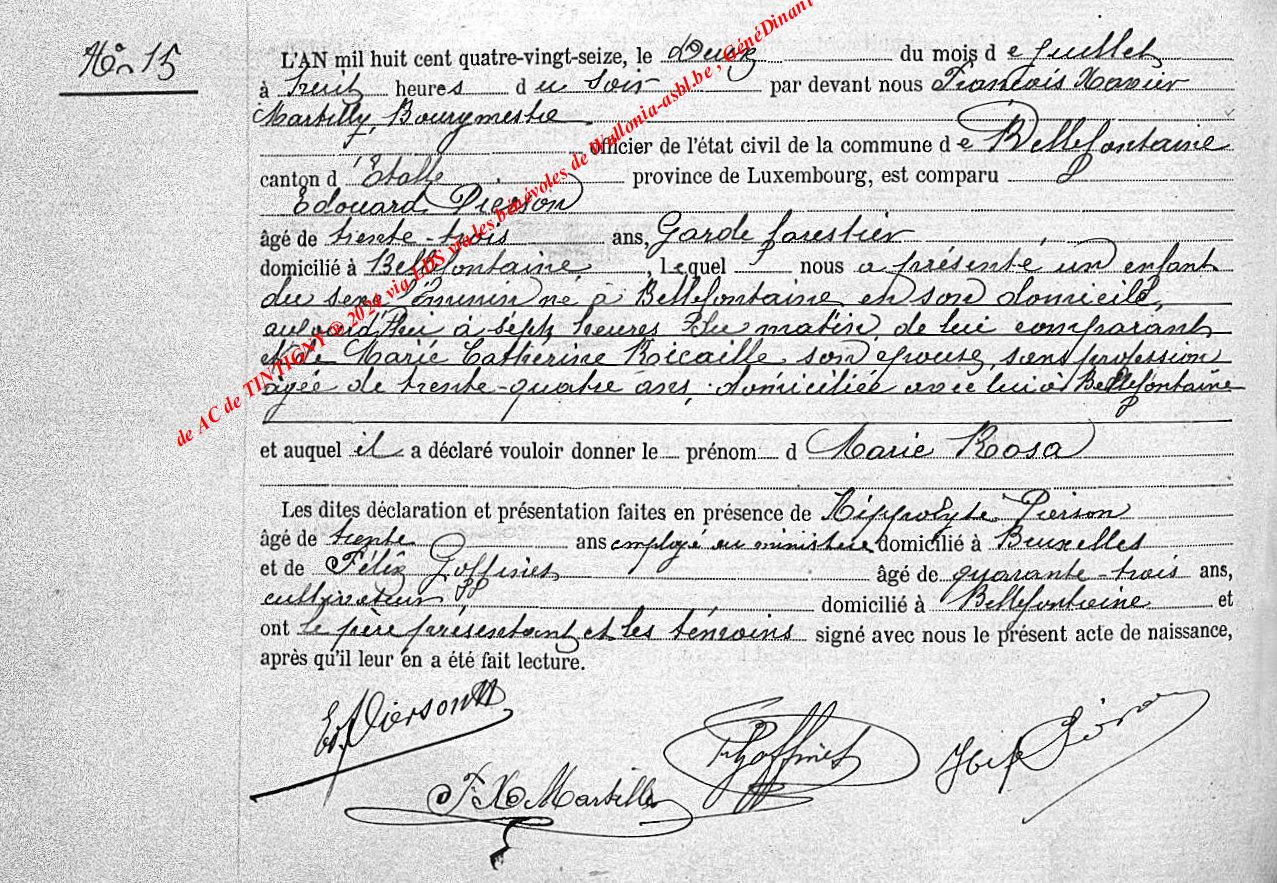 No 15
L'AN mil huit cent quatre-vingt-seize, le Deux du mois d e Juillet
à huit heures d u soir par devant nous François Xavier
Marbilly, Bourgmestre
officier de l'état civil de la commune d e Bellefontaine
canton d 'Etalle province de Luxembourg, est comparu
Edouard Pierson
âgé de trente-trois ans, Garde forestier
domicilié à Bellefontaine, Lequel nous a présenté un enfant
du sexe féminin né à Bellefontaine, en son domicile,
aujourd'hui à sept heures du matin, de lui comparant
et de Marie Catherine Ricaille son épouse, sans profession
âgée de trente-quatre ans, domiciliée avec lui à Bellefontaine
et auquel il a déclaré vouloir donner le prénom d Marie Rosa
Les dites déclaration et présentation faites en présence de Hippolyte Pierson
âgé de trente ans employé au ministère domicilié à Bruxelles
et de Félix Goffinet âgé de quarante-trois ans,
cultivateur domicilié à Bellefontaine et
ont le père présentant et les témoins signé avec nous le présent acte de naissance,
après qu'il leur en a été fait lecture.
Ed. Pierson
F Goffinet
F. X. Marbilly
de AC de TINTIGNY © 2024 via LDS via les bénévoles de Wallonia-asbl.be ; GénéDinant